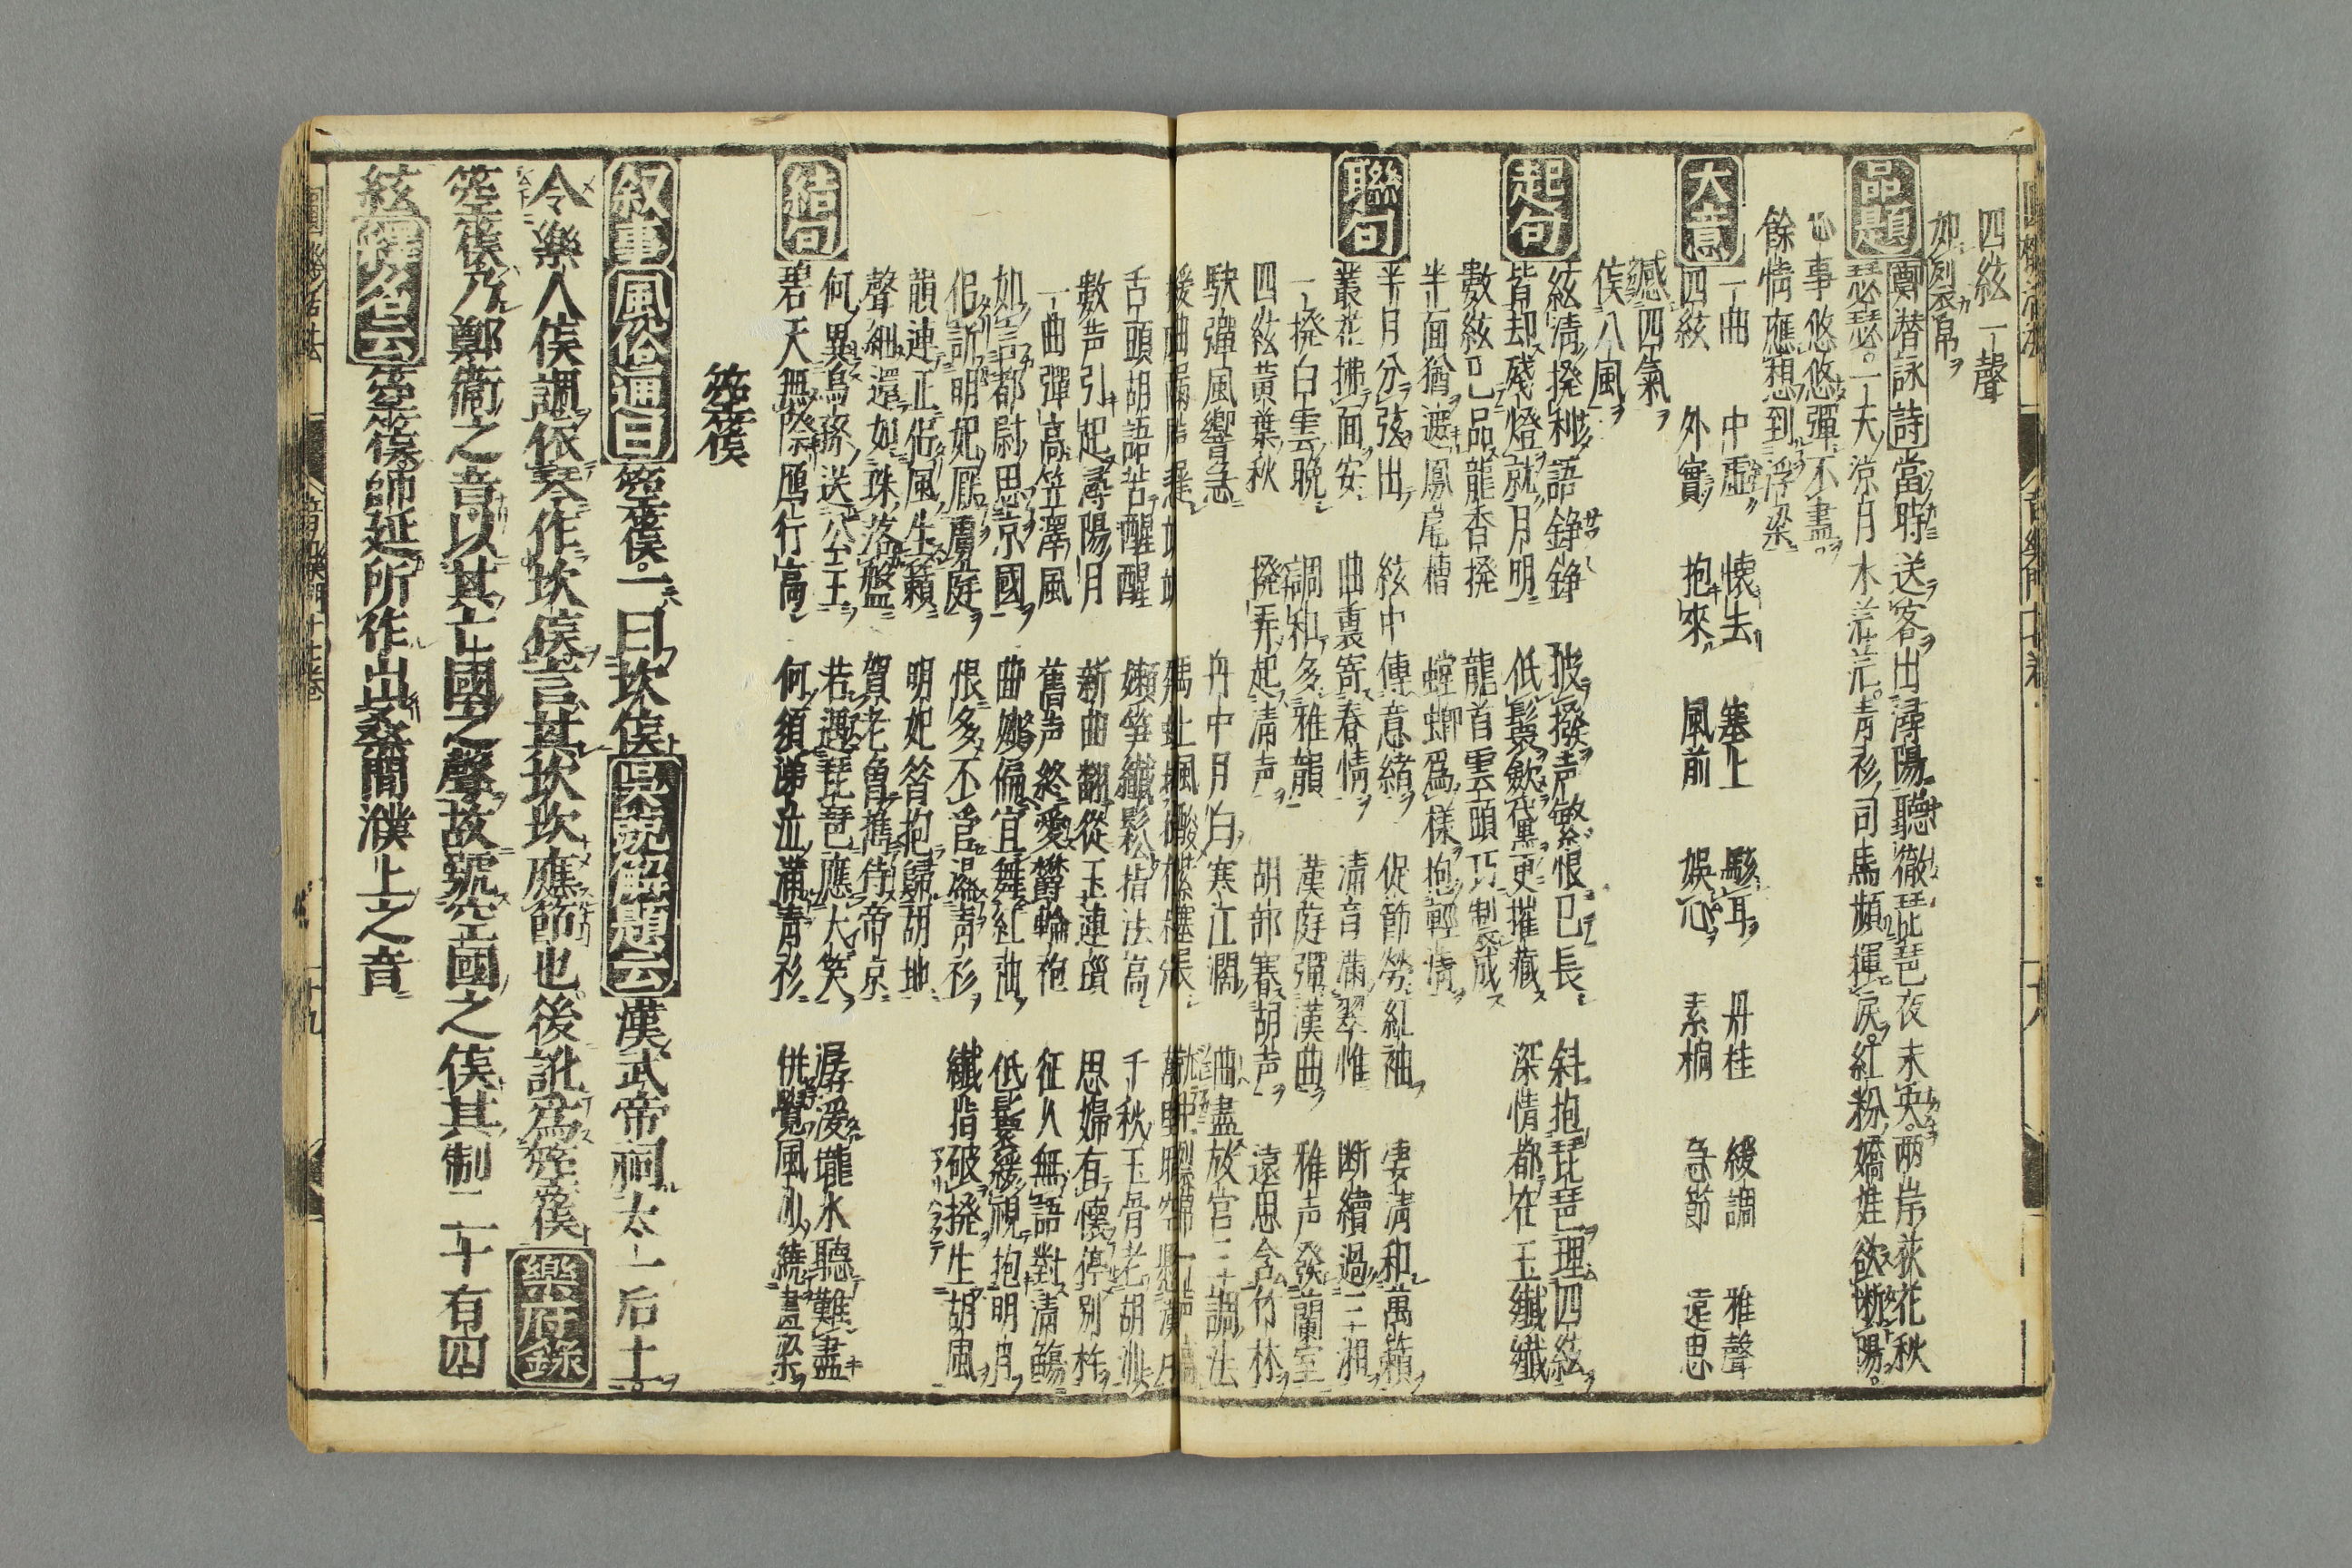 四絃一聲
如裂帛
品題 鄭潜詠詩 當時送客出潯陽聽徹琵琶夜未央兩岸荻花秋
瑟瑟一天凉月水茫茫青衫司馬頻揮淚紅粉嬌娃欲断腸
心事悠悠彈不盡
餘情應想到浮梁
大意 一曲 中虛 懷去 塞上 駭耳 丹桂 緩調 雅聲
四絃 外實 抱來 風前 娯心 素桐 急節 遠思
緘四氣
俟八風
起句 絃淸撥利語錚錚 披撥声繁恨已長 斜抱琵琶理四絃
皆却残燈就月明 低鬟歛黛更摧藏 深情都在玉纖纖
數絃已品龍香撥 龍首雲頭巧制成
半面猶遮鳳尾槽 螳蜋爲様抱輕淸
聯句 半月分弦出 絃中傳意緒 促節勞紅袖 凄淸和萬籟
叢花拂面安 曲裏寄春情 淸音滿翠帷 断續過三湘
一撥白雲晩 調和多雅韻 漢庭彈漢曲 雅声發蘭室
四絃黃葉秋 撥弄起淸声 胡部賽胡声 遠思含竹林
駃彈風響急 舟中月白寒江濶 曲盡放官三調法
舌頭胡語苦醒醒 嬾笋纖鬆指法高 千秋玉骨老胡沙
數声引起潯陽月 新曲翻從玉連瑣 思婦有懷停別柞
一曲彈高笠澤風 舊声終愛欝輪袍 征人無語對淸觴
如言都尉思京國 曲嬾偏宜舞紅袖 低鬟緩視抱明月
佀訴明妃厭虜庭 恨多不啻濕青衫 纖指破撥生胡風
韻連正佀風生籟 明妃昝抱歸胡地
聲細還如珠落盤 賀老曾携侍帝京
結句 何異烏孫送公主 若遇琵琶應大笑 潺湲壠水聽難盡
碧天無際鴈行高 何須涕泣滿青衫 併覺風沙繞畫梁
箜篌
叙事 風俗通曰 箜篌一曰坎侯 吳兢解題云 漢武帝祠太一后土
令樂人侯調依琴作坎侯言其坎坎應節也後訛爲箜篌 樂府錄
箜篌乃鄭衛之音以其亡國之聲故號空國之侯其制二十有四
絃 釋名云 箜篌師延所作出桑間濮上之音